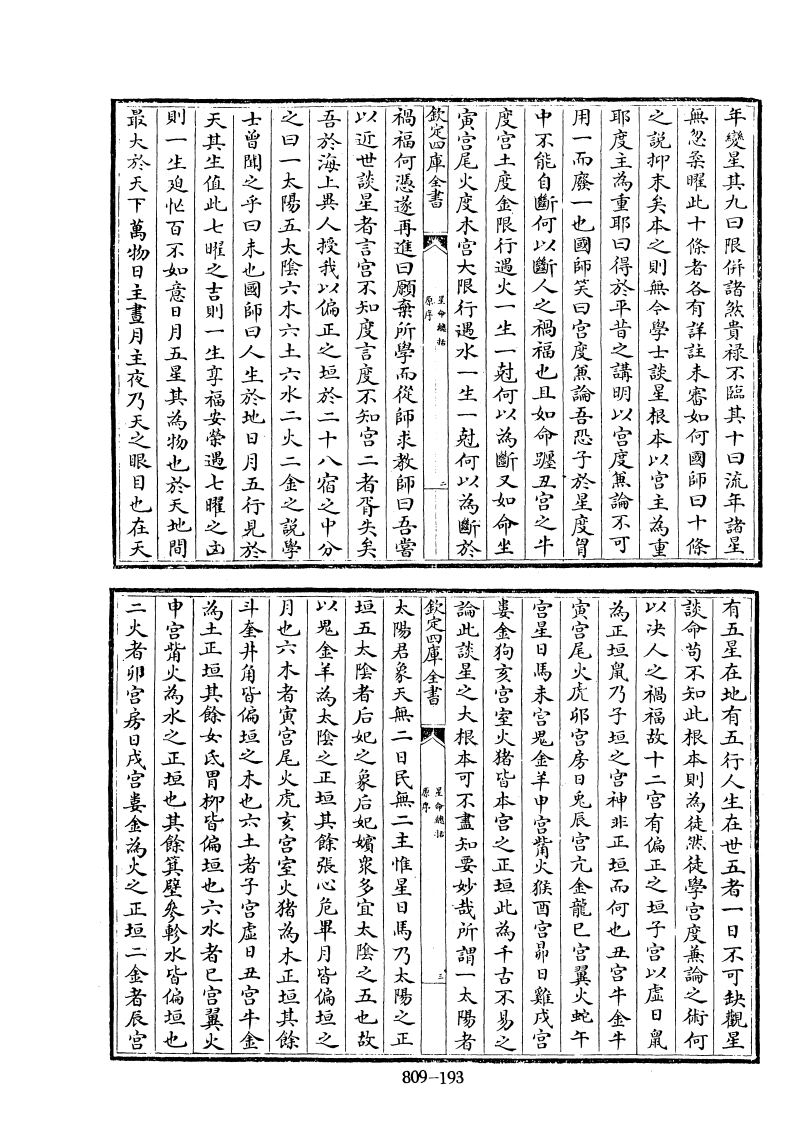 年變星其九曰限併諸煞貴禄不臨其十曰流年諸星
無忽柔曜此十條者各有詳註未審如何國師曰十條
之說抑末矣本之則無今學士談星根本以宫主為重
耶度主為重耶曰得於平昔之講明以宫度兼論不可
用一而廢一也國師笑曰宫度兼論吾恐子於星度胷
中不能自斷何以斷人之禍福也且如命躔丑宫之牛
度宫土度金限行遇火一生一尅何以為斷又如命坐
寅宫尾火度木宫大限行遇水一生一尅何以為斷於
欽定四庫全書
星命總括
原序
二
禍福何憑遂再進曰願棄所學而從師求教師曰吾嘗
以近世談星者言宫不知度言度不知宫二者胥失矣
吾於海上異人授我以偏正之垣於二十八宿之中分
之曰一太陽五太陰六木六土六水二火二金之説學
士曾聞之乎曰未也國師曰人生於地日月五行見於
天其生值此七曜之吉則一生享福安榮遇七曜之凶
則一生迫忙百不如意日月五星其為物也於天地間
最大於天下萬物日主晝月主夜乃天之眼目也在天
有五星在地有五行人生在世五者一日不可缺觀星
談命苟不知此根本則為徒然徒學宫度兼論之術何
以决人之禍福故十二宫有偏正之垣子宫以虚日鼠
為正垣鼠乃子垣之宫神非正垣而何也丑宫牛金牛
寅宫尾火虎卯宫房日兎辰宫亢金龍巳宫翼火蛇午
宫星日馬未宫鬼金羊申宫觜火猴酉宫昴日雞戌宫
婁金狗亥宫室火猪皆本宫之正垣此為千古不易之
論此談星之大根本可不盡知要妙哉所謂一太陽者
欽定四庫全書
星命總括
原序
三
太陽君象天無二日民無二主惟星日馬乃太陽之正
垣五太陰者后妃之象后妃嬪衆多宜太陰之五也故
以鬼金羊為太陰之正垣其餘張心危畢月皆偏垣之
月也六木者寅宫尾火虎亥宫室火猪為木正垣其餘
斗奎井角皆偏垣之木也六土者子宫虚日丑宫牛金
為土正垣其餘女氐胃柳皆偏垣也六水者巳宫翼火
申宫觜火為水之正垣也其餘箕壁參軫水皆偏垣也
二火者卯宫房日戌宫婁金為火之正垣二金者辰宫
809-193